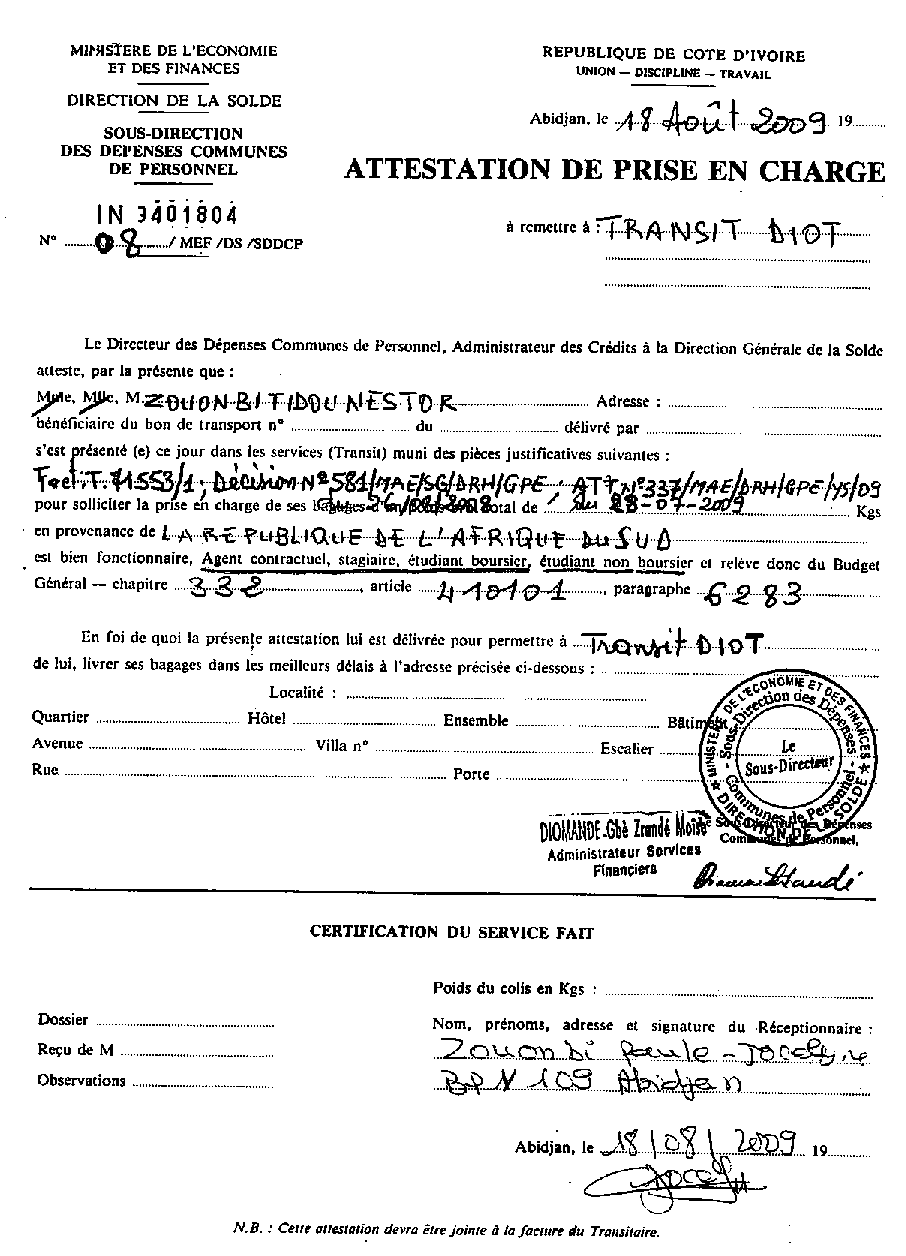 MINISTERE DE L'ECONOMIE
ET DES FINANCES
DIRECTION DE LA SOLDE
SOUS-DIRECTION
DES DEPENSES COMMUNES
DE PERSONNEL
IN 3401804
N° 08 / MEF /DS /SDDCP
REPUBLIQUE DE COTE D'IVOIRE
UNION — DISCIPLINE — TRAVAIL
Abidjan, le 18 Août 2009 19
ATTESTATION DE PRISE EN CHARGE
à remettre à : TRANSIT DIOT
Le Directeur des Dépenses Communes de Personnel, Administrateur des Crédits à la Direction Générale de la Solde
atteste, par la présente que :
Mme, Mlle, M. ZOUON-BI TIDOU NESTOR Adresse :
bénéficiaire du bon de transport n° du délivré par
s'est présenté (e) ce jour dans les services (Transit) muni des pièces justificatives suivantes :
Fact.T. 71553/1, Décision N° 581/MAE/SG/DRH/GPE, ATT N°337/MAE/DRH/GPE/YS/09
pour solliciter la prise en charge de ses bagages total de du 28-07-2009 Kgs
en provenance de LA REPUBLIQUE DE L'AFRIQUE DU SUD
est bien fonctionnaire, Agent contractuel, stagiaire, étudiant boursier, étudiant non boursier et relève donc du Budget
Général — chapitre 338, article 410101, paragraphe 6283
En foi de quoi la présente attestation lui est délivrée pour permettre à Transit DIOT
de lui, livrer ses bagages dans les meilleurs délais à l'adresse précisée ci-dessous :
Localité :
Quartier Hôtel Ensemble Bâtiment
Avenue Villa n° Escalier
Rue Porte
MINISTERE DE L'ECONOMIE ET DES FINANCES
Sous-Direction des Dépenses
Communes de Personnel
DIRECTION DE LA SOLDE
Le
Sous-Directeur
DIOMANDE-Gbè Zrandé Moïse
Administrateur Services
Financiers
Le Sous-Directeur des Dépenses
Communes de Personnel,
CERTIFICATION DU SERVICE FAIT
Poids du colis en Kgs :
Dossier
Reçu de M
Observations
Nom, prénoms, adresse et signature du Réceptionnaire :
Zouonbi Paule-Jocelyne
BP V 109 Abidjan
Abidjan, le 18/08/2009 19
N.B. : Cette attestation devra être jointe à la facture du Transitaire.